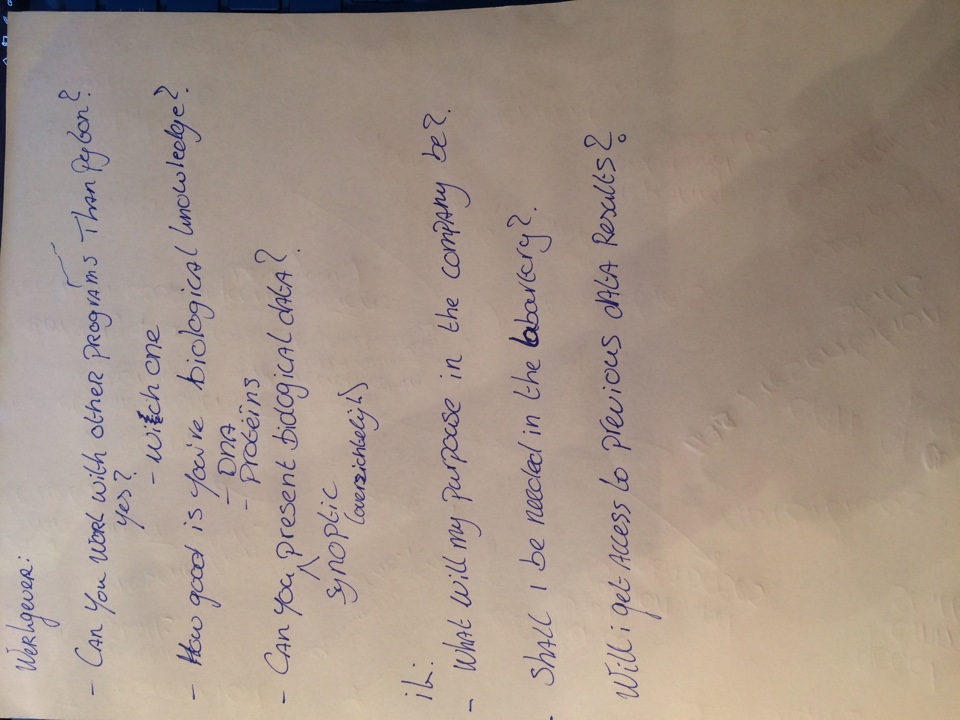 Werkgever:
- Can you work with other programs than Pyton?
yes?
- Witch one
- How good is you're biological knowledge?
- DNA
- Proteïns
- Can you present biological data?
synoptic
(overzichtelijk)
ik:
- What will my purpose in the company be?
- Shall I be needed in the labortory?
Will i get Access to previous data Results?